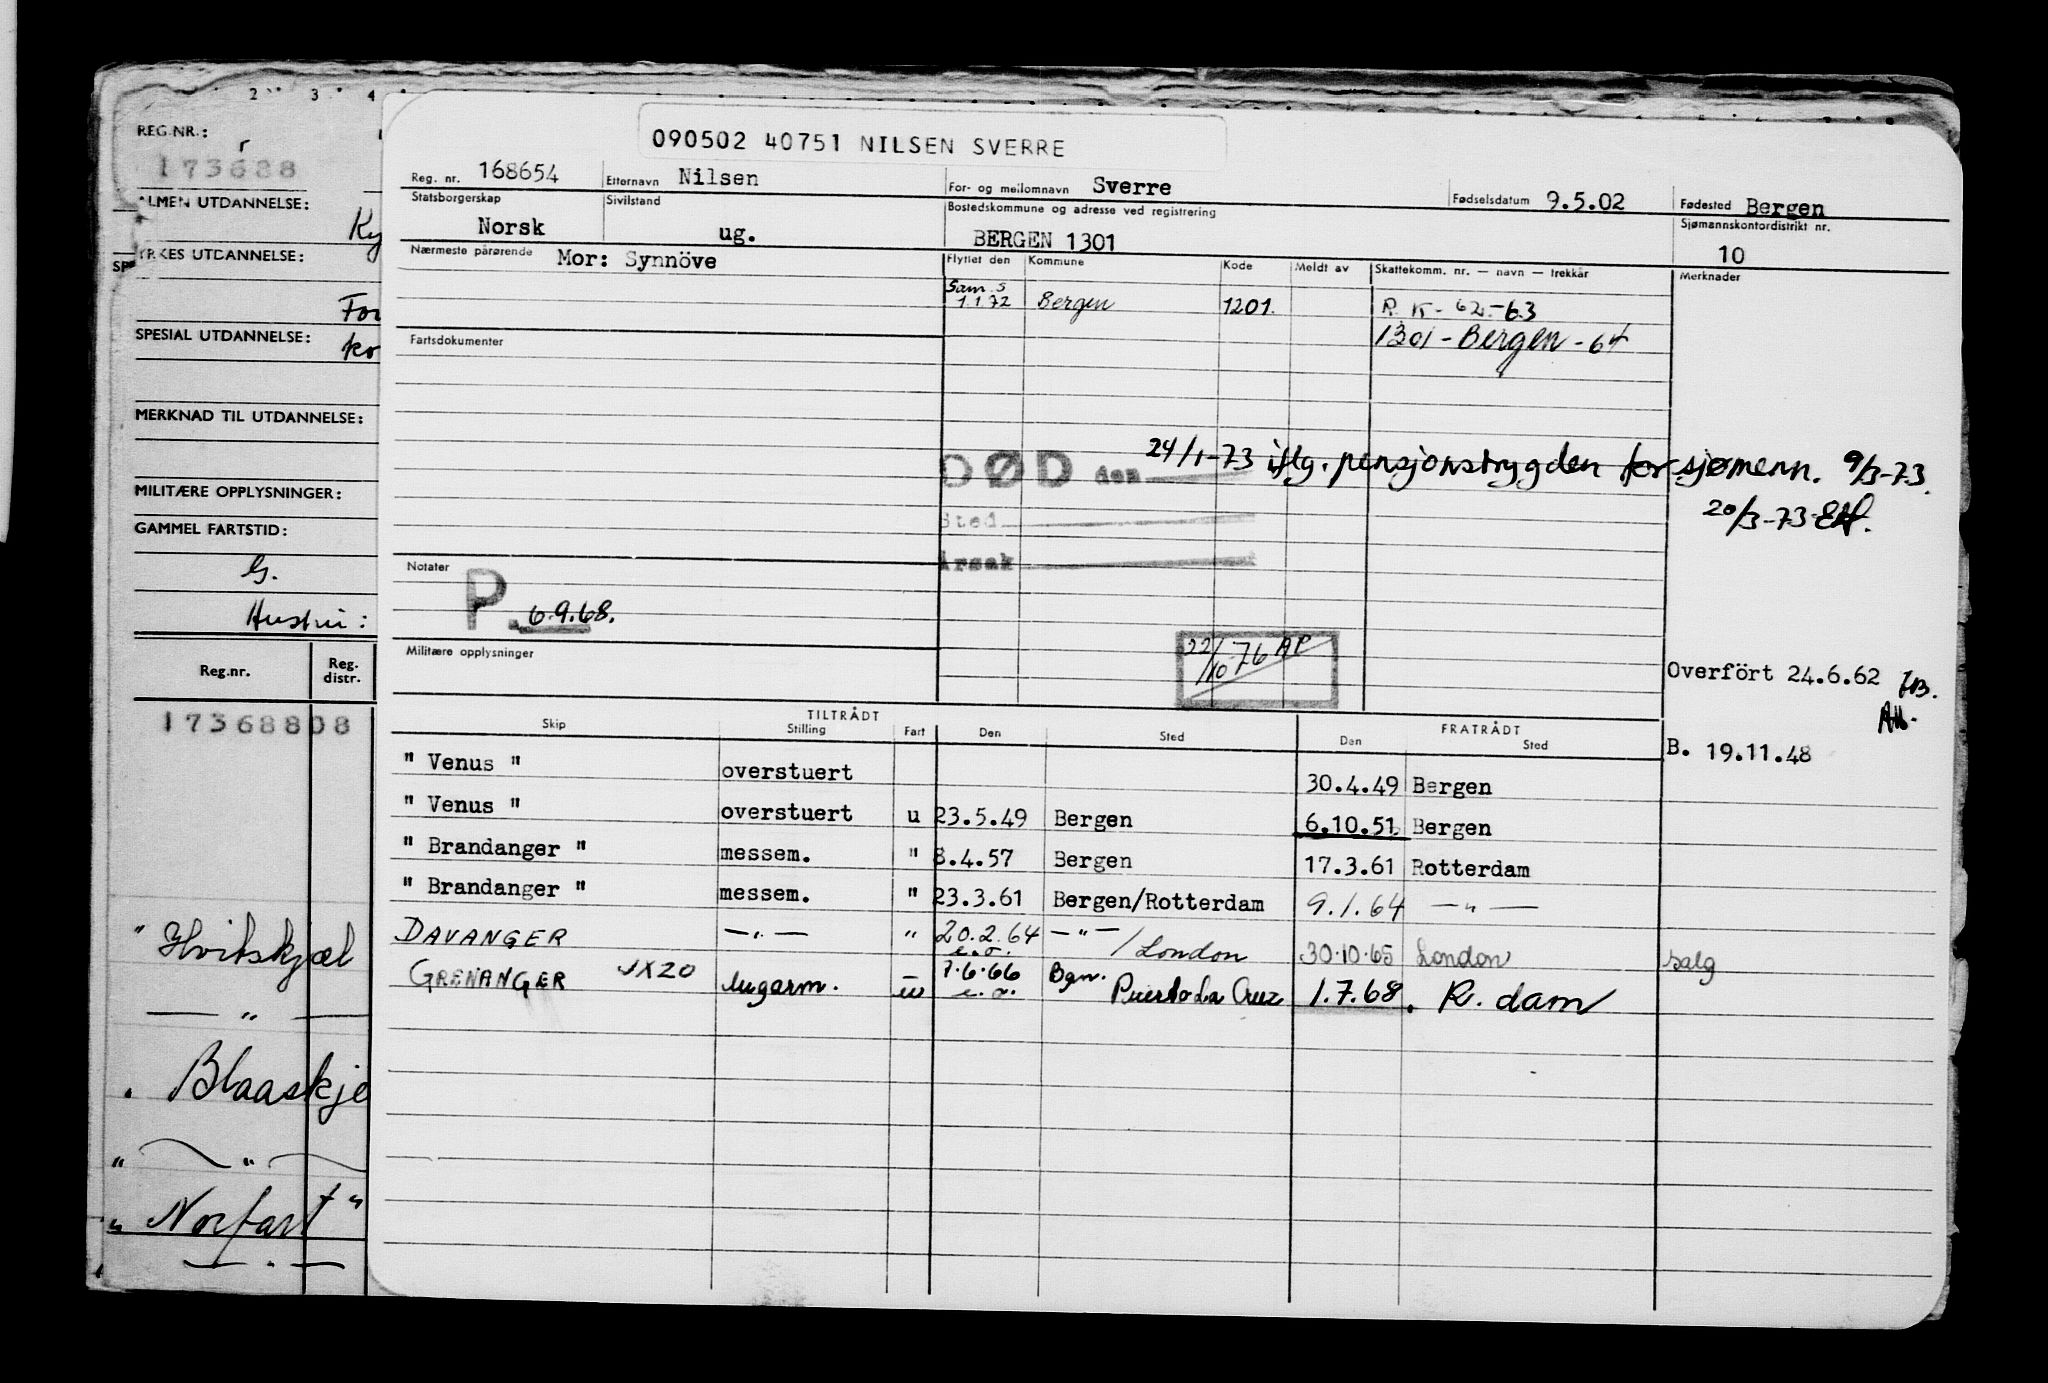 2 3 4
REG.NR.:
173688
ALMEN UTDANNELSE:
YRKES UTDANNELSE:
SPESIAL UTDANNELSE:
MERKNAD TIL UTDANNELSE:
MILITÆRE OPPLYSNINGER:
GAMMEL FARTSTID:
Hustru:
Reg.nr. Reg. distr.
17368808
" Hvitskjæl
— " —
" Blaaskje
" — " —
" Norfart "
— " —
090502 40751 NILSEN SVERRE
Reg. nr. 168654 Etternavn Nilsen For- og mellomnavn Sverre Fødselsdatum 9.5.02 Fødested Bergen
Statsborgerskap Norsk Sivilstand ug. Bostedskommune og adresse ved registrering BERGEN 1301 Sjømannskontordistrikt nr. 10
Nærmeste pårørende Mor: Synnöve Flyttet den Kommune Kode Meldt av Skattekomm. nr. — navn — trekkår Merknader
Sam.s
1.1.72 Bergen 1201. R.K- 62-63
1301 - Bergen - 64
Fartsdokumenter
DØD den 24/1-73 iflg. pensjonstrygden for sjømenn. 9/3-73.
Sted 20/3-73-
Årsak
Notater
P 6.9.68.
22/10-76 AP
Militære opplysninger
Overfört 24.6.62
TILTRÅDT FRATRÅDT
Skip Stilling Fart Den Sted Den Sted
B. 19.11.48
" Venus " overstuert 30.4.49 Bergen
" Venus " overstuert u 23.5.49 Bergen 6.10.51 Bergen
" Brandanger " messem. " 8.4.57 Bergen 17.3.61 Rotterdam
" Brandanger " messem. " 23.3.61 Bergen/Rotterdam 9.1.64 — " —
DAVANGER — " — " 20.2.64 — " — / London 30.10.65 London salg
GRENANGER JXZO lugarm. 7.6.66 Bgn. Puerto La Cruz 1.7.68. R.dam